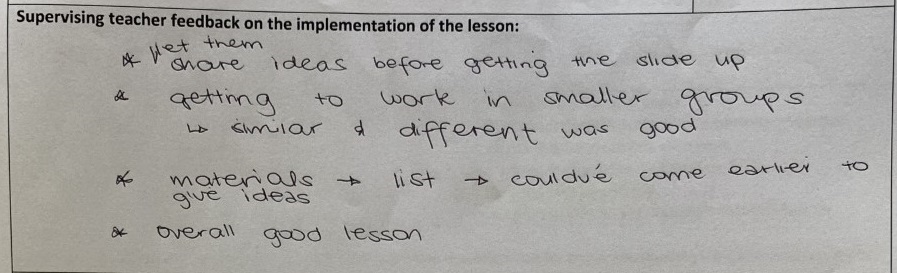 Supervising teacher feedback on the implementation of the lesson:
* let them
share ideas before getting the slide up
* getting to work in smaller groups
↳ similar & different was good
* materials → list → could've come earlier to
give ideas
* overall good lesson